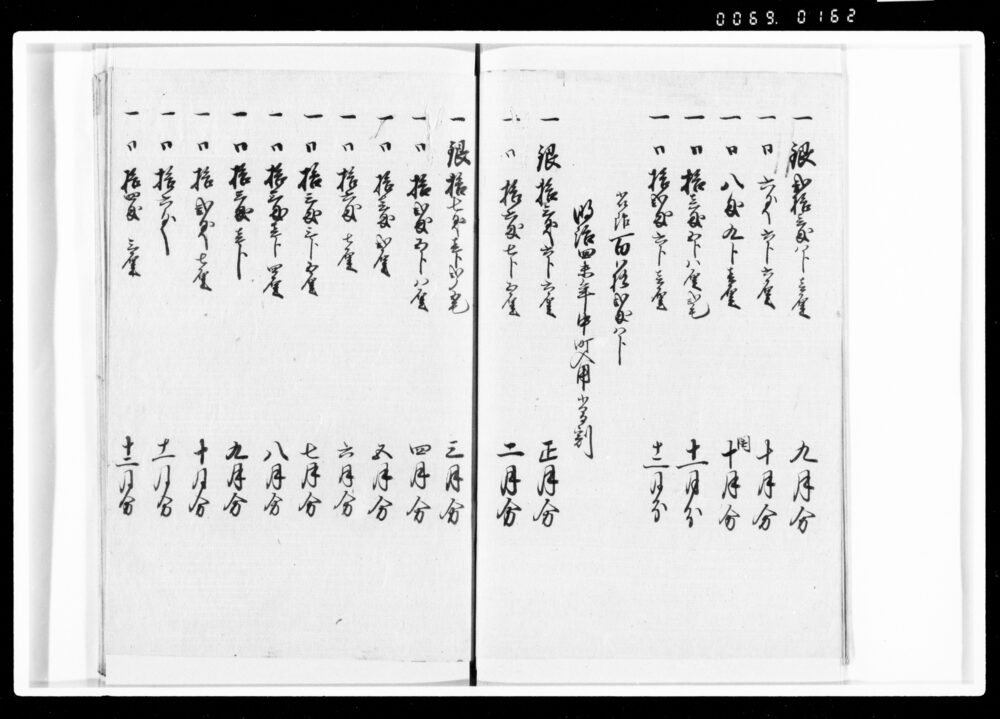 0069. 0162
一 銀弐拾三匁八分三厘 九月分
一 同 六匁六分六厘 十月分
一 同 八匁九分壱厘 閏十月分
一 同 拾三匁五分八厘弐毛 十一月分
一 同 拾弐匁六分三厘 十二月分
百 弐匁八分
明治四未年中町入用小間割
一 銀拾六匁六分六厘 正月分
一 同 拾六匁七分五厘 二月分
一 銀拾七匁 三月分
一 同 拾弐匁五分八厘 四月分
一 同 拾三匁弐厘 五月分
一 同 拾六匁七厘 六月分
一 同 拾三匁三分五厘 七月分
一 同 拾三匁 四厘 八月分
一 同 拾三匁 九月分
一 同 拾弐匁七厘 十月分
一 同 拾六匁 十一月分
一 同 拾四匁三厘 十二月分